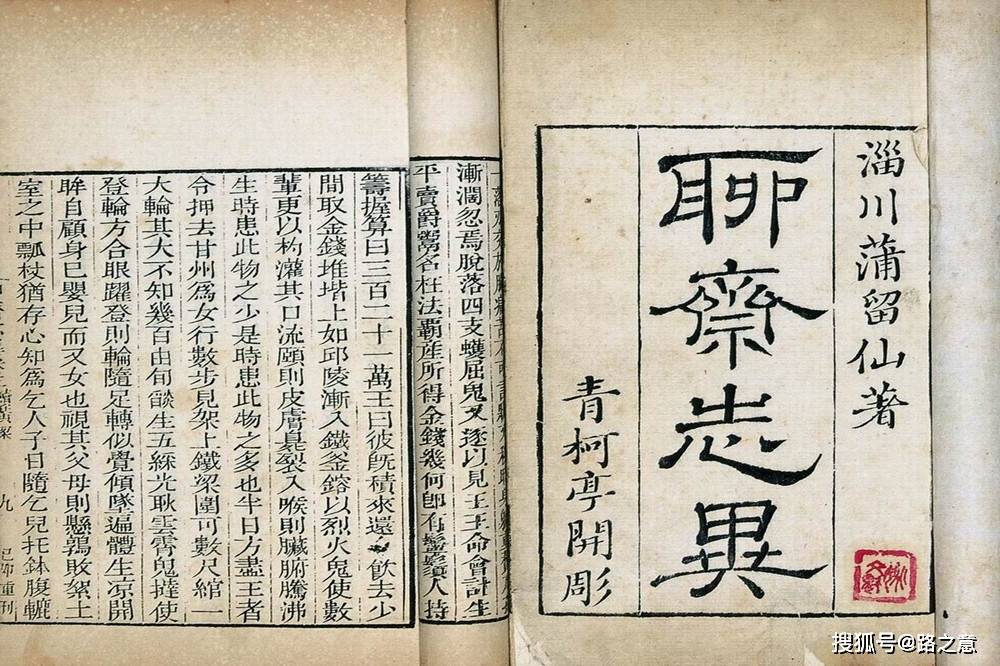 淄川蒲留仙著
聊齋志異
青柯亭開彫
漸濶忽焉脫落四支蠖屈鬼又逐以見王王命會計生
平賣爵鬻名枉法覇產所得金錢幾何卽有鬡鬚人持
籌握算曰三百二十一萬王曰彼旣積來還 飲去少
間取金錢堆堦上如邱陵漸入鐵釜鎔以烈火鬼使數
輩更以杓灌其口流頤則皮膚臭裂入喉則臟腑騰沸
生時患此物之少是時患此物之多也半日方盡王者
令押去甘州爲女行數步見架上鐵梁圍可數尺綰一
大輪其大不知幾百由旬燄生五綵光耿雲霄鬼撻使
登輪方合眼躍登則輪隨足轉似覺傾墜遍體生凉開
眸自顧身已嬰兒而又女也視其父母則懸鶉敗絮土
室之中瓢杖猶存心知爲乞人子日隨乞兒托鉢腹轆
九
己卯重刊
搜狐号@路之意